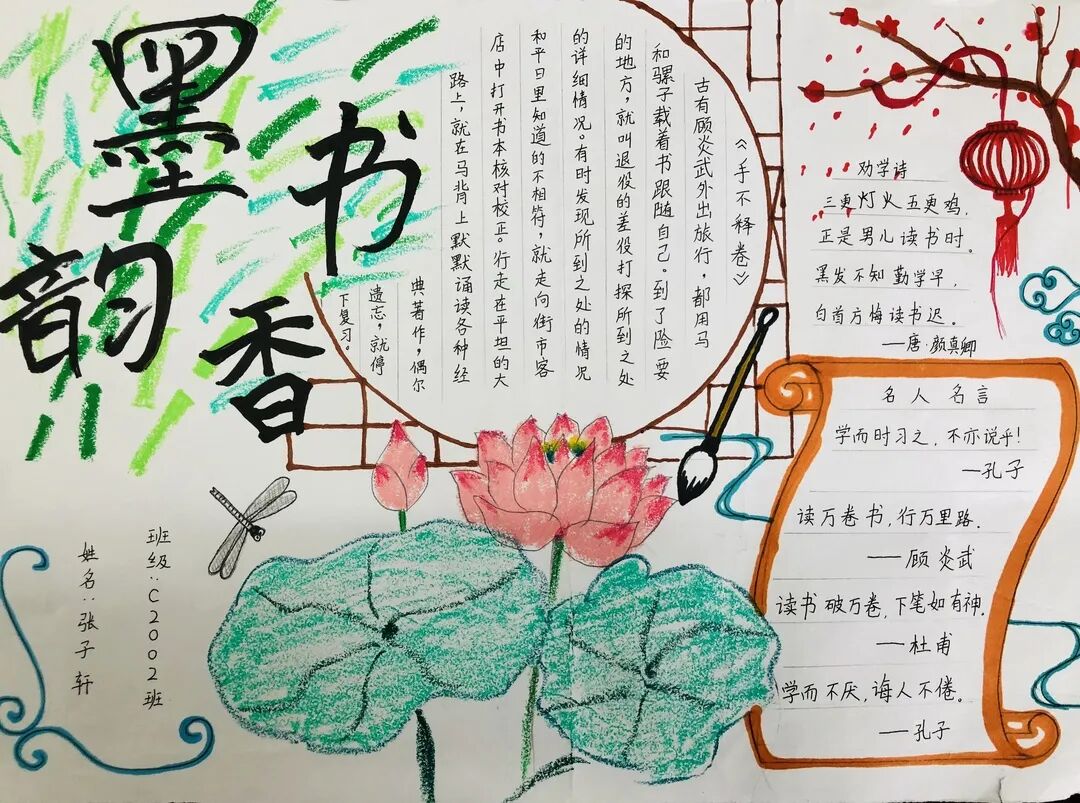 墨韵
书香
《手不释卷》
古有顾炎武外出旅行，都用马
和骡子载着书跟随自己。到了险要
的地方，就叫退役的差役打探所到之处
的详细情况。有时发现所到之处的情况
和平日里知道的不相符，就走向街市客
店中打开书本核对校正。行走在平坦的大
路上，就在马背上默默诵读各种经
典著作，偶尔
遗忘，就停
下复习。
劝学诗
三更灯火五更鸡，
正是男儿读书时。
黑发不知勤学早，
白首方悔读书迟。
—唐·颜真卿
名人名言
学而时习之，不亦说乎！
—孔子
读万卷书，行万里路．
—顾炎武
读书破万卷，下笔如有神．
—杜甫
学而不厌，诲人不倦。
—孔子
班级：C2002班
姓名：张子轩